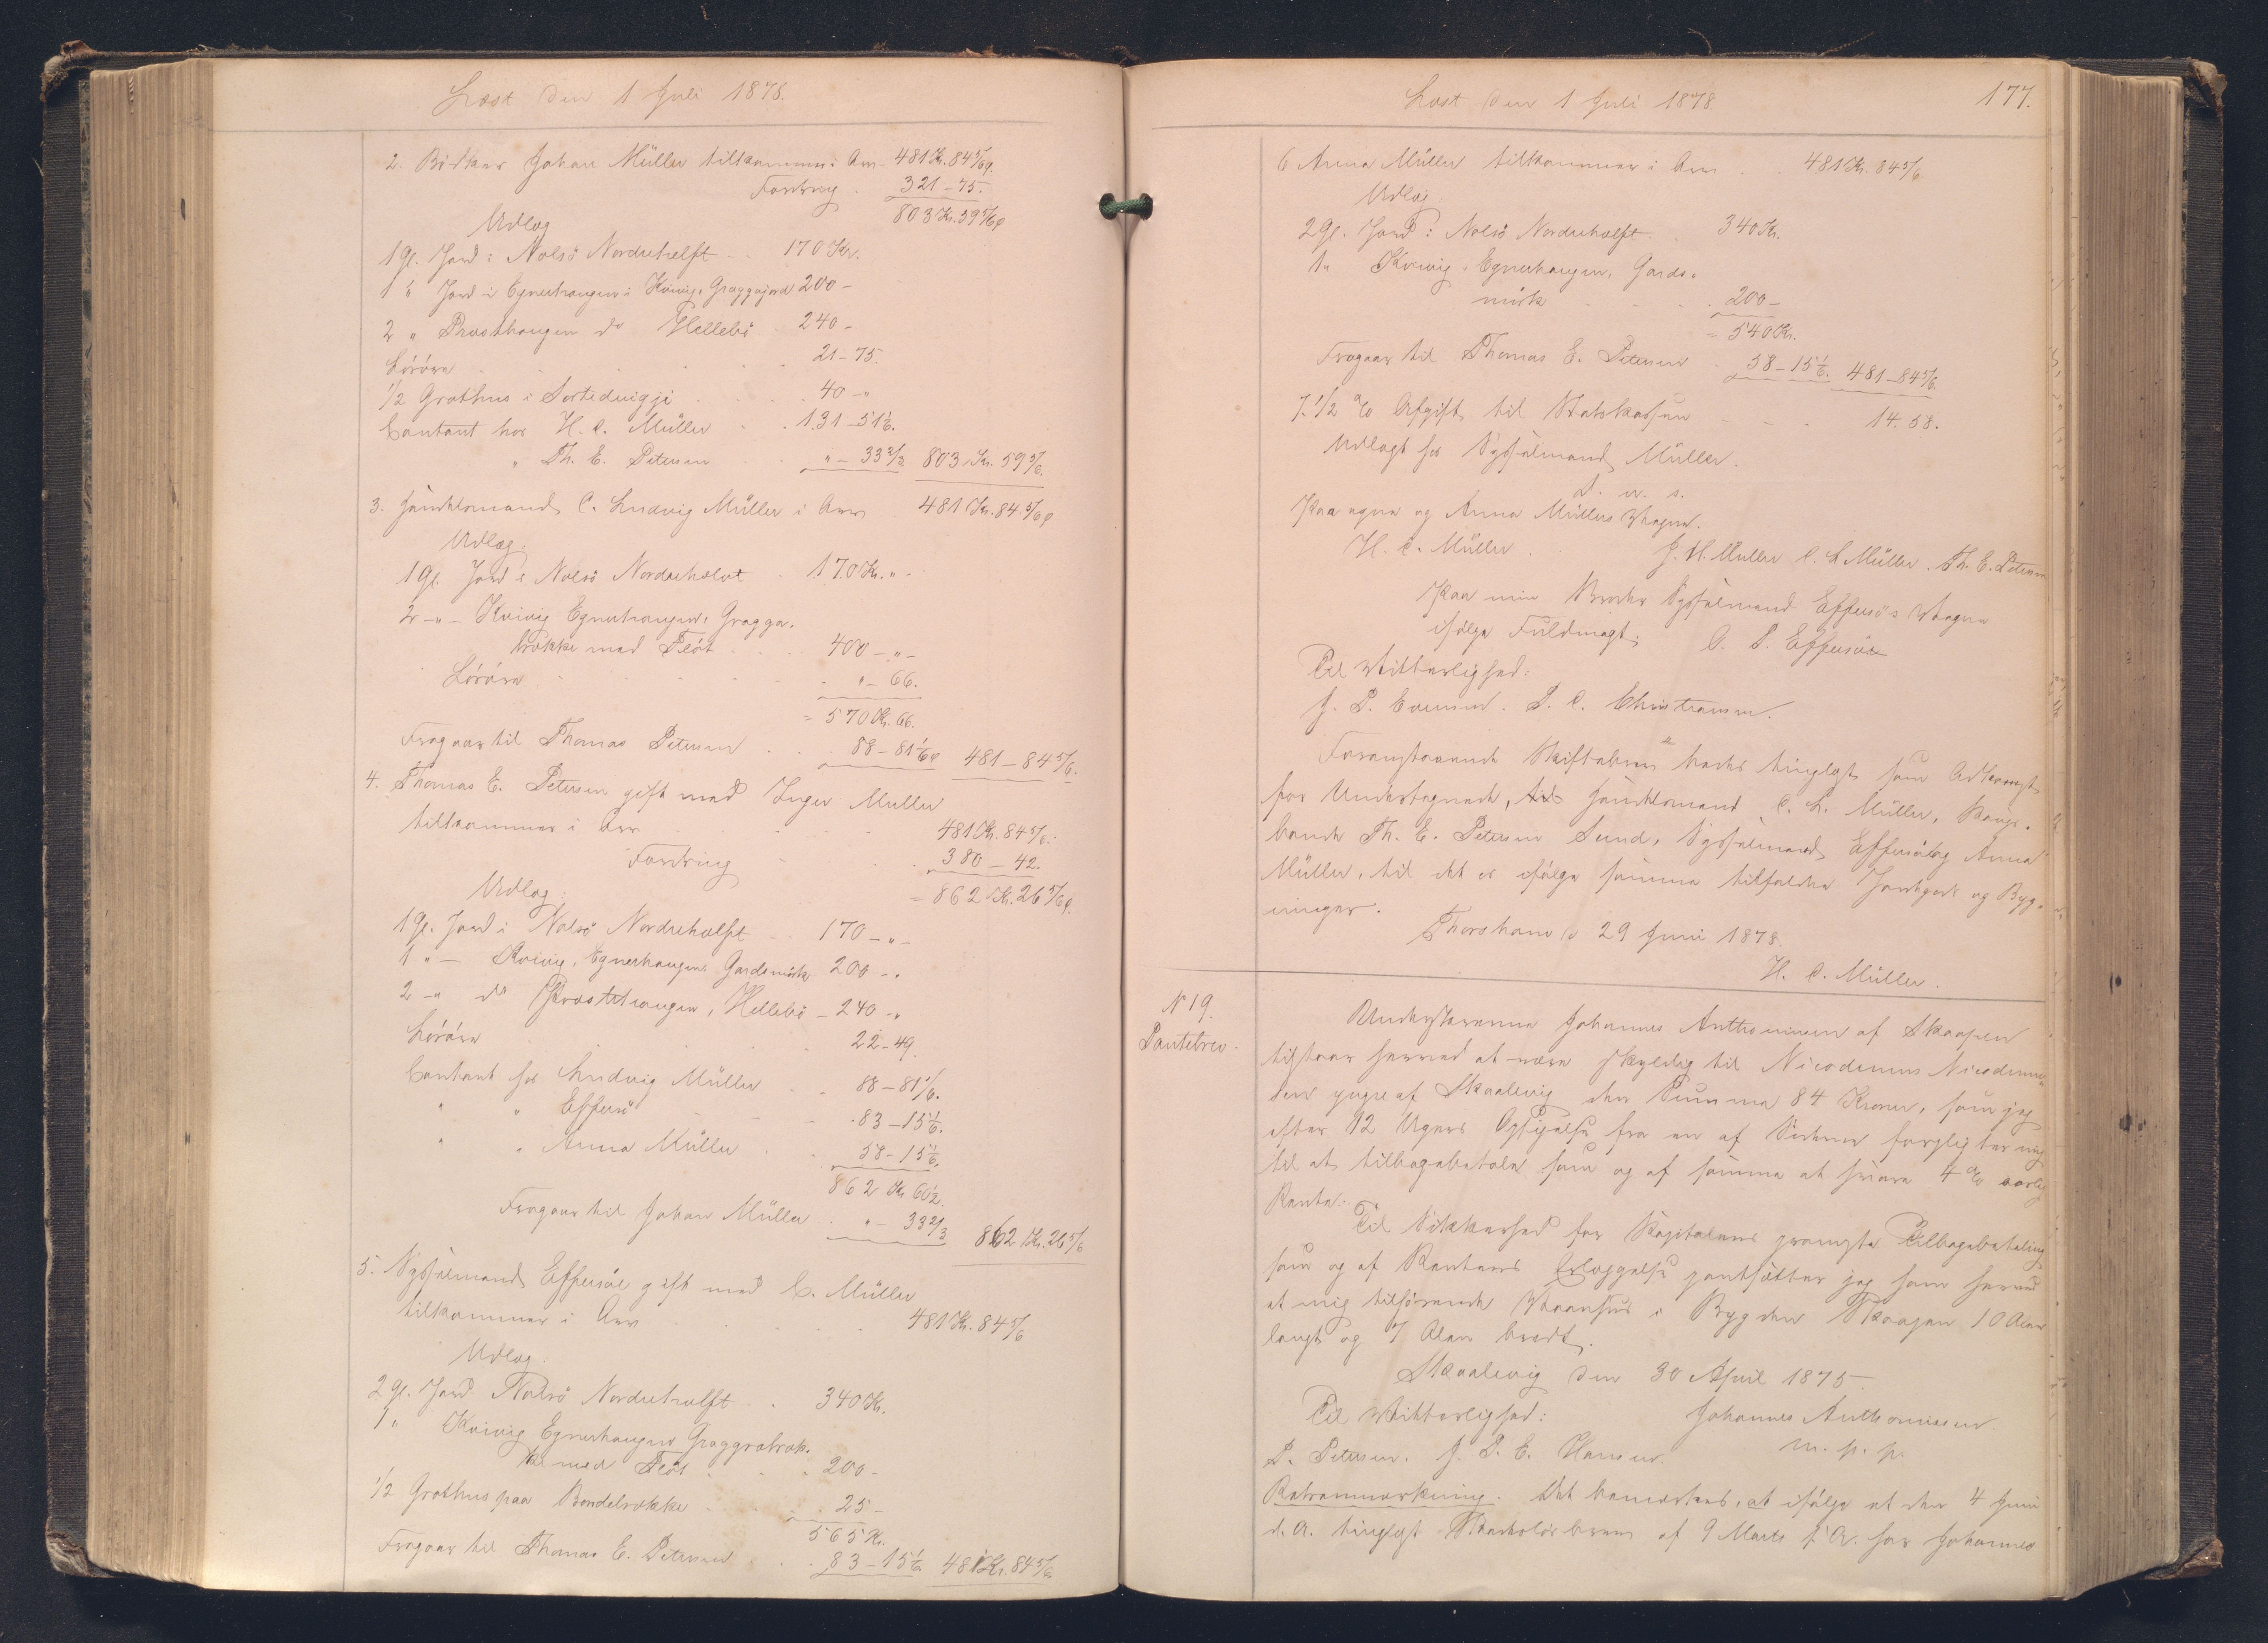 Læst den 1 Juli 1878.
2. Bødker Johan Müller tilkommer i Arv 481 Kr. 84 5/6 Ø.
Fordring 321 – 75.
803 Kr. 59 5/6 Ø
Udlæg
1 Gl. Jord i Nolsö Nordrehelft 170 Kr.
1 " Jord i Egnerhaugen i Kvivig, 200 –
2 " Præsthaugen do Hellebö 240 –
Lösöre 21 – 75.
1/2 Grothus i 40 – "
Contant hos H. C. Müller 131 – 51 1/6.
" Th. E. Petersen " – 33 2/3 803 Kr. 59 5/6.
3. Handelsmand C. Ludvig Müller i Arv 481 Kr. 84 5/6 Ø
Udlæg.
1 Gl. Jord i Nolsö Nordrehalvt 170 Kr. " –
2 – " – Kvivig Egnerhaugen, Gragga-
trække med Flöt 400 – " –
Lösöre " – 66.
= 570 Kr. 66.
Fragaar til Thomas Petersen 88 – 81 1/6 Ø 481 – 84 5/6.
4. Thomas E. Petersen gift med Inger Müller
tilkommer i Arv 481 Kr. 84 5/6.
Fordring 380 – 42.
= 862 Kr. 26 5/6 Ø.
Udlæg:
1 Gl. Jord i Nolsö Nordrehalft 170 – " –
1 " – Kvivig, Egnerhaugen, Gardsmörk 200 – "
2 – " do Præstehaugen, Hellebö – 240 – "
Lösöre 22 – 49.
Contant hos Ludvig Müller 88 – 81 1/6.
" " Effersö 83 – 15 1/6.
" " Anna Müller 58 – 15 1/6.
862 Kr 60 1/2.
Fragaar til Johan Müller " – 33 2/3 862 Kr. 26 5/6
5. Sysselmand Effersöe gift med C. Müller
tilkommer i Arv 481 Kr. 84 5/6
Udlæg.
2 Gl. Jord Nolsö Nordrehalft 340 Kr.
1 " Kvivig Egnerhaugen Graggatræk-
ke med Flöt 200 –
1/2 Grothus paa Bondelrække 25 –
565 Kr.
Fragaar til Thomas E. Petersen 83 – 15 1/6 481 Kr. 84 5/6
Læst den 1 Juli 1878. 177.
6 Anna Müller tilkommer i Arv 481 Kr. 84 5/6
Udlæg
2 Gl. Jord i Nolsö Nordrehalft 340 Kr.
1 " Kvivig, Egnerhaugen, Gards-
mörk 200 –
= 540 Kr.
Fragaar til Thomas E. Petersen 58 – 15 1/6. 481 – 84 5/6.
7. 1/2 % Afgift til Statskassen 14. 58.
Udlagt hos Sysselmand Müller.
D. u. s.
Paa egne og Anna Müllers Vegne.
H. C. Müller. J. H. Müller C. L. Müller. Th. E. Petersen
Paa min Broder Sysselmand Effersö's Vegne
ifølge Fuldmagt: O. P. Effersöe
Til Vitterlighed:
J. P. Evensen. P. C. Christiansen.
Foranstaaende Skiftebrev bedes tinglyst som Adkomst
for Undertegnede, til Handelsmand C. L. Müller, Konge-
bonde Th. E. Petersen Sund, Sysselmand Effersöe og Anna
Müller, til det os ifølge samme tilfaldne Jordegods og Byg-
ninger.
Thorshavn d 29 Juni 1878.
H. C. Müller.
N 19.
Pantebrev.
Underskrevne Johannes Anthonissen af Skaapen
tilstaar herved at være skyldig til Nicodemus Nicodemus-
sen yngre af Skaalevig den Summa 84 Kroner, som jeg
efter 12 Ugers Opsigelse fra en af Siderne forpligter mig
til at tilbagebetale som og af samme at svare 4 % aarlig
Rente.
Til Sikkerhed for Kapitalens prompte Tilbagebetaling
som og af Rentens Erlæggelse pantsætter jeg som herved
et mig tilhørende Vaanhus i Bygden Skaapen 10 Alen
langt og 7 Alen bredt.
Skaalevig den 30 April 1875.
Til Vitterlighed: Johannes Anthonissen
P. Petersen. J. P. E. Hansen. m. p. p.
Retsanmærkning. Det bemærkes, at ifølge et den 4 Juni
d. A. tinglyst af 9 Marts f. A. har Johannes